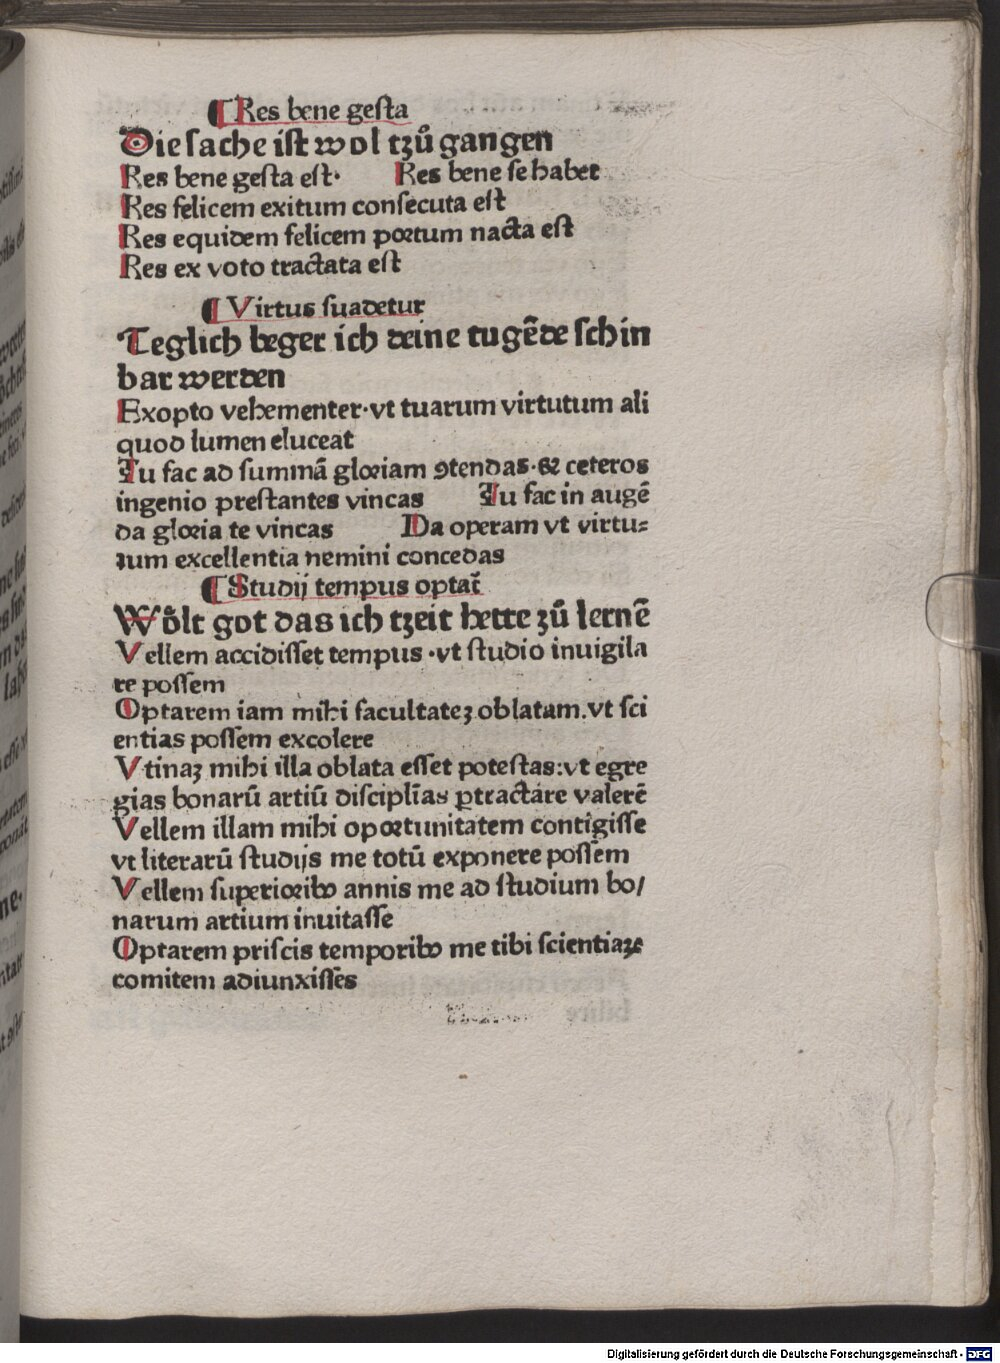 ¶ Res bene gesta
Die sache ist wol tzů gangen
Res bene gesta est· Res bene se habet
Res felicem exitum consecuta est
Res equidem felicem portum nacta est
Res ex voto tractata est
¶ Virtus suadetur
Teglich beger ich deine tugẽde schin
bar werden
Exopto vehementer·vt tuarum virtutum ali
quod lumen eluceat
Tu fac ad summã gloriam ꝯtendas·& ceteros
ingenio prestantes vincas Tu fac in augẽ
da gloria te vincas Da operam vt virtu⸗
tum excellentia nemini concedas
¶ Studij tempus optat̃
Wo̊lt got das ich tzeit hette zů lernẽ
Vellem accidisset tempus ·vt studio inuigila
re possem
Optarem iam mihi facultateꝫ oblatam.vt sci
entias possem excolere
Vtinaꝫ mihi illa oblata esset potestas:vt egre
gias bonarũ artiũ disciplĩas ꝑtractare valerẽ
Vellem illam mihi oportunitatem contigisse
vt literarũ studijs me totũ exponere possem
Vellem superioribꝰ annis me ad studium bo/
narum artium inuitasse
Optarem priscis temporibꝰ me tibi scientiaꝝ
comitem adiunxisses
Digitalisierung gefördert durch die Deutsche Forschungsgemeinschaft - DFG